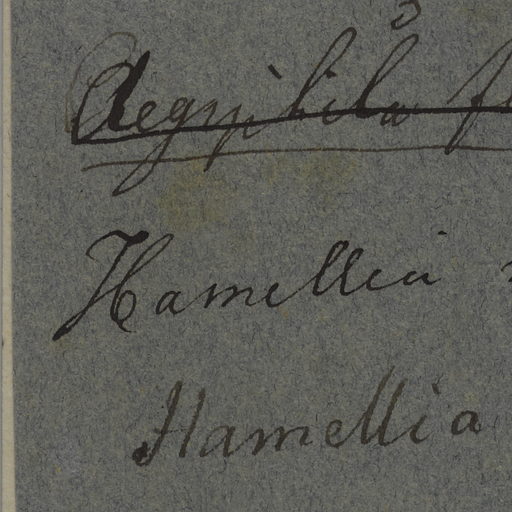 Aegiphila
Hamellia
Hamellia